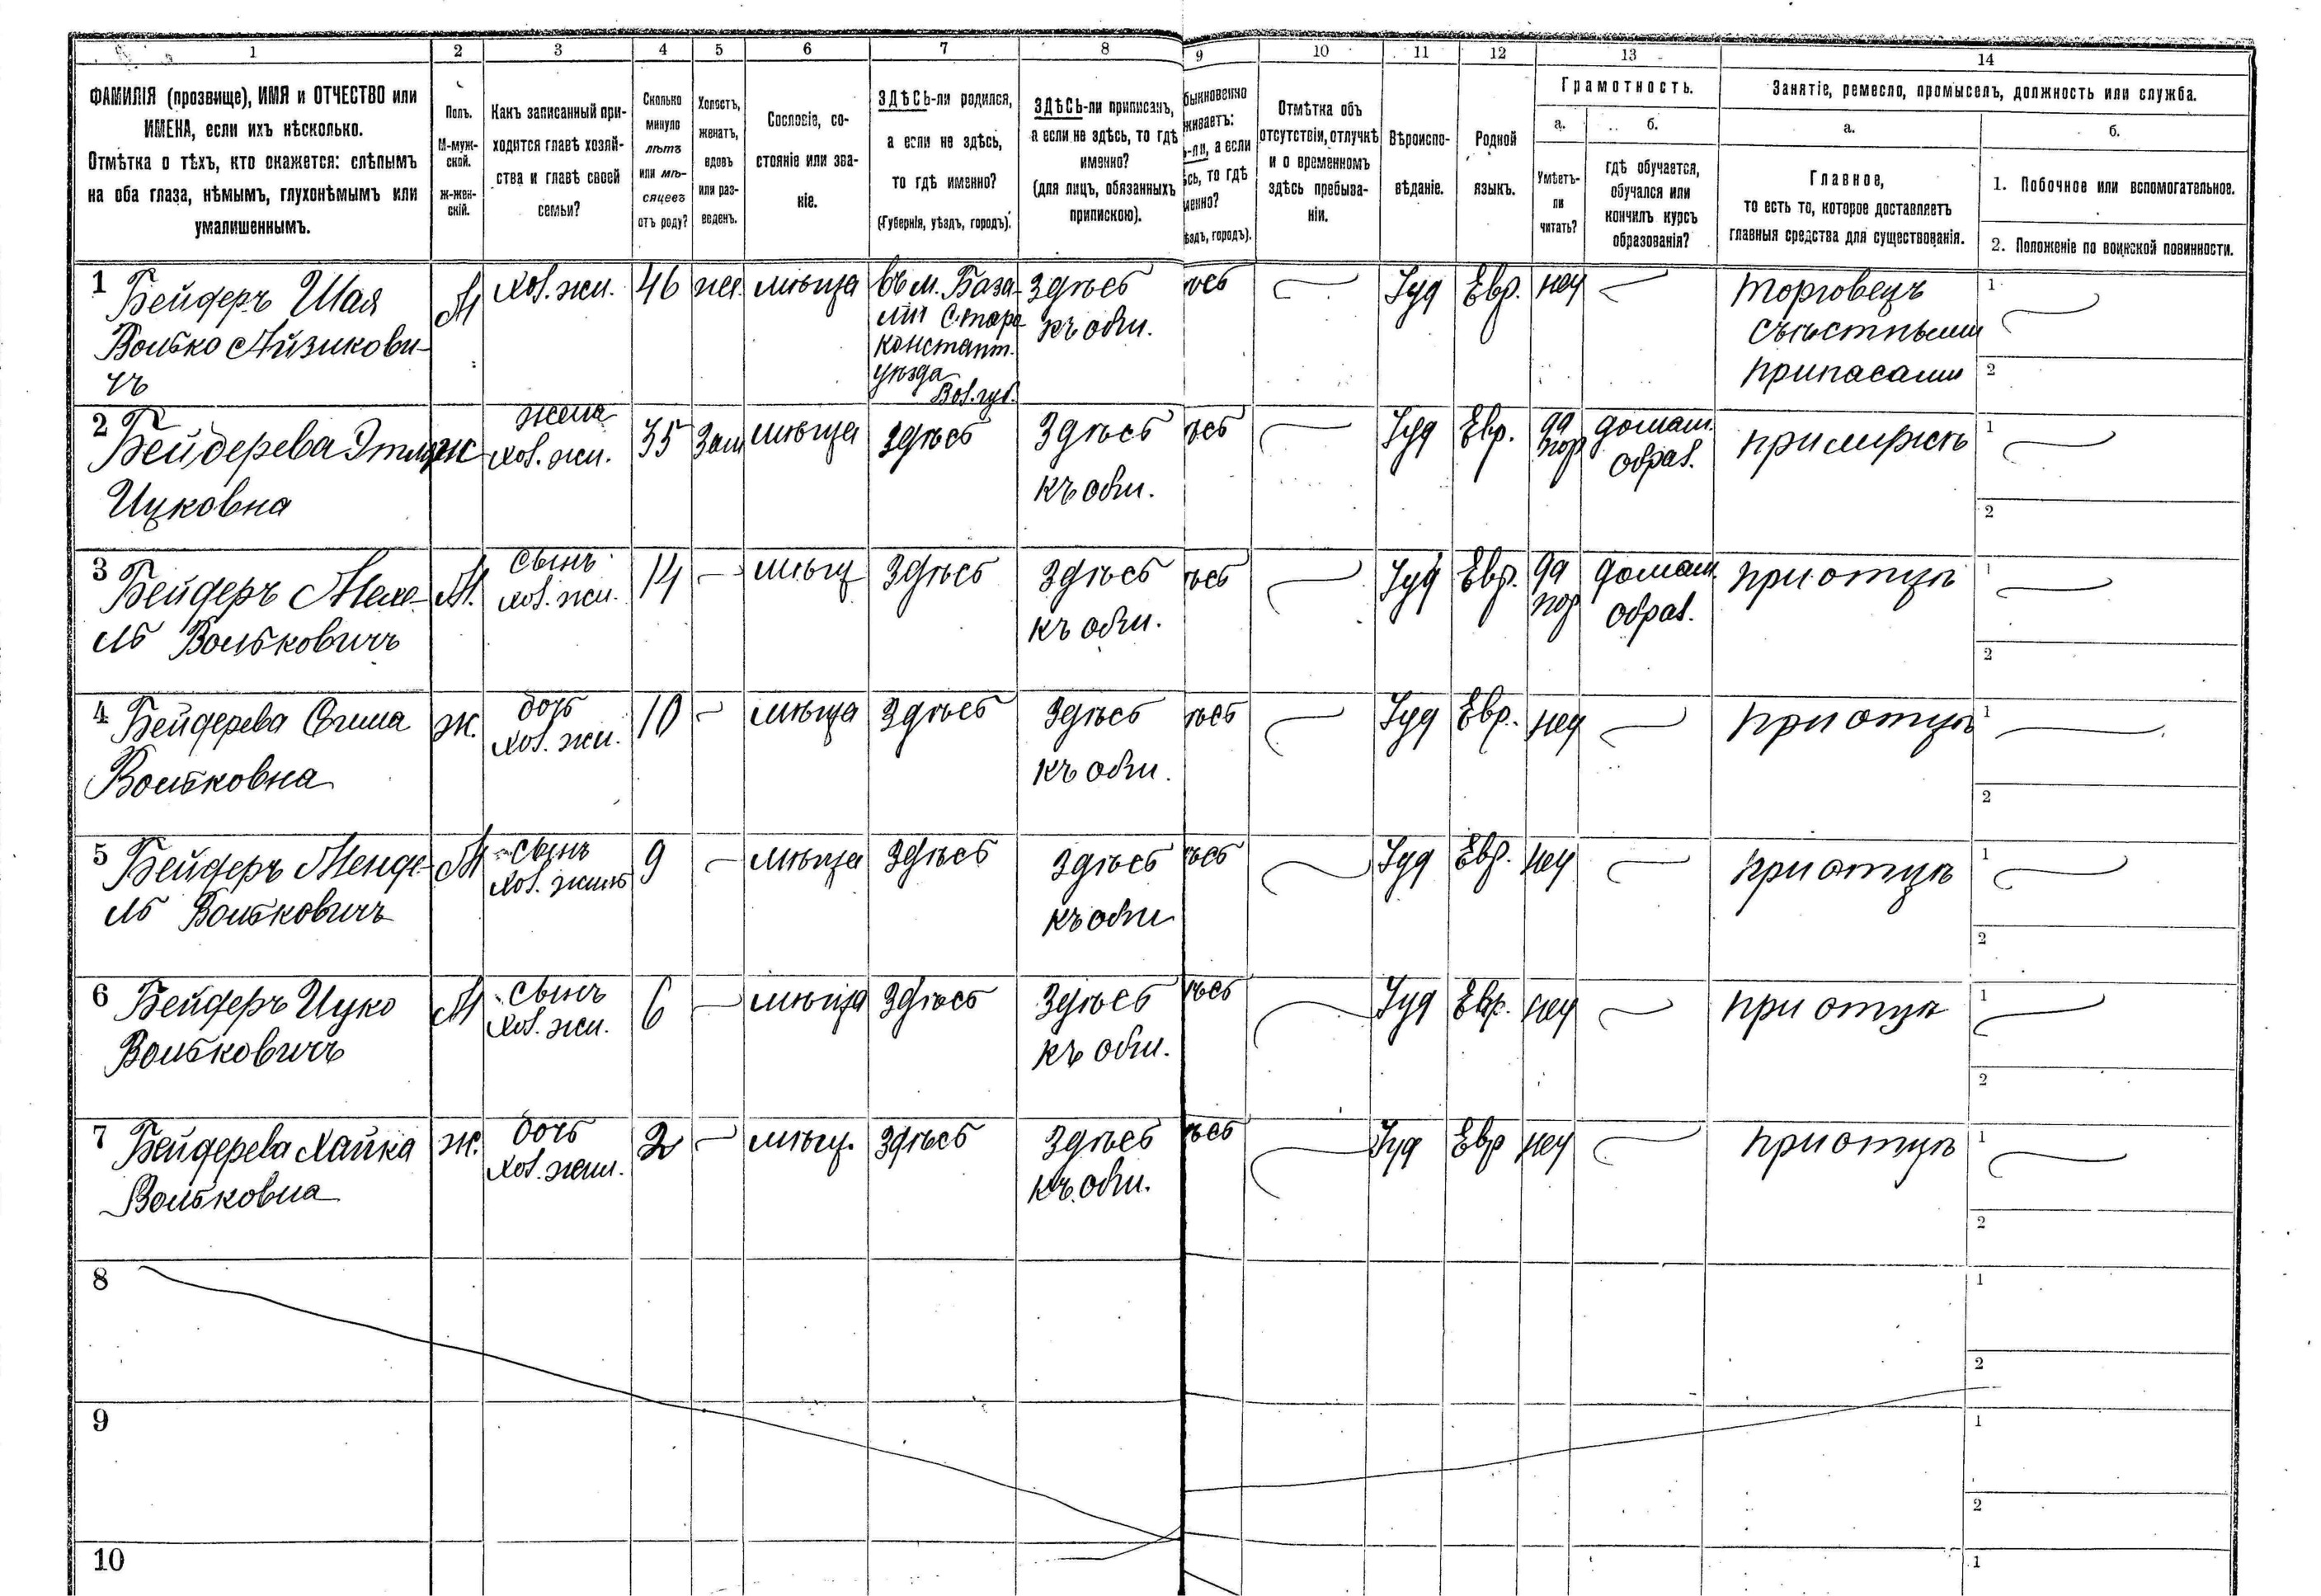 1 2 3 4 5 6 7 8 9 10 11 12 13 14
ФАМИЛІЯ (прозвище), ИМЯ и ОТЧЕСТВО или
ИМЕНА, если ихъ нѣсколько.
Отмѣтка о тѣхъ, кто окажется: слѣпымъ
на оба глаза, нѣмымъ, глухонѣмымъ или
умалишеннымъ.
Полъ.
М-муж-
ской.
Ж-жен-
скій.
Какъ записанный при-
ходится главѣ хозяй-
ства и главѣ своей
семьи?
Сколько
минуло
лѣтъ
или мѣ-
сяцевъ
отъ роду?
Холостъ,
женатъ,
вдовъ
или раз-
веденъ.
Сословіе, со-
стояніе или зва-
ніе.
ЗДѢСЬ-ли родился,
а если не здѣсь,
то гдѣ именно?
(Губернія, уѣздъ, городъ).
ЗДѢСЬ-ли приписанъ,
а если не здѣсь, то гдѣ
именно?
(для лицъ, обязанныхъ
припискою).
быкновенно
живаетъ:
ь-ли, а если
ѣсь, то гдѣ
менно?
ѣздъ, городъ).
Отмѣтка объ
отсутствіи, отлучкѣ
и о временномъ
здѣсь пребыва-
ніи.
Вѣроиспо-
вѣданіе.
Родной
языкъ.
Грамотность.
а.
Умѣетъ-
ли
читать?
б.
гдѣ обучается,
обучался или
кончилъ курсъ
образованія?
Занятіе, ремесло, промыселъ, должность или служба.
а.
Главное,
то есть то, которое доставляетъ
главныя средства для существованія.
б.
1. Побочное или вспомогательное.
2. Положеніе по воинской повинности.
1 Бейдеръ Шая
Волько Айзикови-
чъ
М
хоз. жи.
46
же.
мѣща
въ м. База-
ліи Старо
констант.
уѣзда
Вол. губ.
Здѣсь
къ общ.
ѣсь
Іуд
Евр.
нѣт
торговецъ
съѣстными
припасами
1
2
2 Бейдерева Этля
Ицковна
ж
жена
хоз. жи.
35
Зам
мѣща
здѣсь
Здѣсь
къ общ.
ѣсь
Іуд
Евр.
да
домаш.
образ.
при мужѣ
1
2
3 Бейдеръ Мехе-
ль Вольковичъ
М.
сынъ
хоз. жи.
14
мѣщ
Здѣсь
Здѣсь
къ общ.
ѣсь
Іуд
Евр.
да
домаш.
образ.
при отцѣ
1
2
4 Бейдерева
Вольковна
ж.
дочь
хоз. жи.
10
мѣща
Здѣсь
Здѣсь
къ общ.
ѣсь
Іуд
Евр.
нѣт
при отцѣ
1
2
5 Бейдеръ Менде-
ль Вольковичъ
М
сынъ
хоз.
9
мѣща
Здѣсь
Здѣсь
къ общ
ѣсь
Іуд
Евр.
нѣт
при отцѣ
1
2
6 Бейдеръ Ицко
Вольковичъ
М
сынъ
хоз. жи.
6
мѣща
Здѣсь
Здѣсь
къ общ.
ѣсь
Іуд
Евр.
нѣт
при отцѣ
1
2
7 Бейдерева Хайка
Вольковна
ж.
дочь
хоз. жи.
2
мѣщ.
Здѣсь
Здѣсь
къ общ.
ѣсь
Іуд
Евр
нѣт
при отцѣ
1
2
8
1
2
9
1
2
10
1